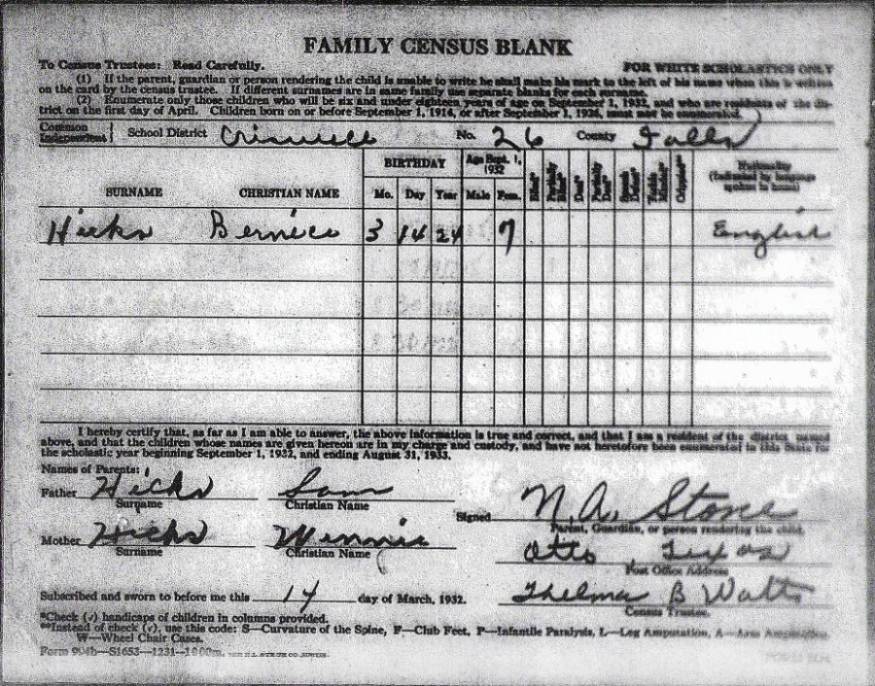 FAMILY CENSUS BLANK
To Census Trustees: Read Carefully. FOR WHITE SCHOLASTICS ONLY
(1) If the parent, guardian or person rendering the child is unable to write he shall make his mark to the left of his name when this is written
on the card by the census trustee. If different surnames are in same family use separate blanks for each surname.
(2) Enumerate only those children who will be six and under eighteen years of age on September 1, 1932, and who are residents of the dis-
trict on the first day of April. Children born on or before September 1, 1914, or after September 1, 1926, must not be enumerated.
Common
Independent } School District Criswell No. 26 County Falls
BIRTHDAY Age Sept. 1, 1932 Nationality
(Indicated by language
spoken in home)
SURNAME CHRISTIAN NAME Mo. Day Year Male Fem. Blind* Partially Blind* Deaf* Partially Deaf* Speech Defect* Crippled**
Hicks Bernice 3 14 24 7 English
I hereby certify that, as far as I am able to answer, the above information is true and correct, and that I am a resident of the district named
above, and that the children whose names are given hereon are in my charge and custody, and have not heretofore been enumerated in this State for
the scholastic year beginning September 1, 1932, and ending August 31, 1933.
Names of Parents:
Father Hicks Sam
Surname Christian Name
Signed N. A. Stone
Parent, Guardian, or person rendering the child.
Mother Hicks Minnie
Surname Christian Name
Otto, Texas
Post Office Address
Subscribed and sworn to before me this 14 day of March, 1932. Thelma B Watts
Census Trustee.
*Check (√) handicaps of children in columns provided.
**Instead of check (√), use this code: S—Curvature of the Spine, F—Club Feet, P—Infantile Paralysis, L—Leg Amputation, A—Arm Amputation,
W—Wheel Chair Cases.
Form 904b—S1653—1231—1000m.